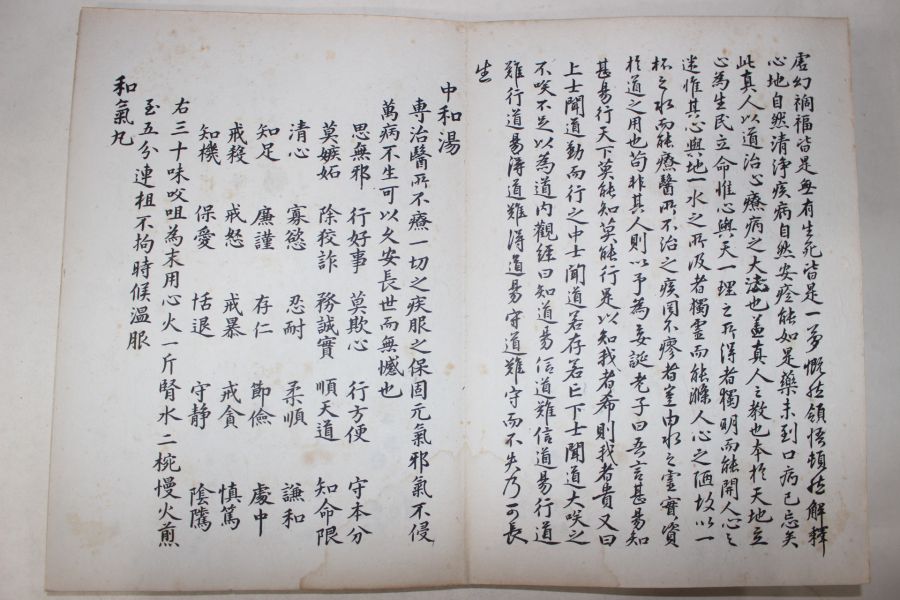 虛幻禍福皆是無有生死皆是一夢慨然領悟頓然解釋
心地自然清淨疾病自然安痊能如是藥未到口病已忘矣
此真人以道治心療病之大法也盖真人之教也本於天地立
心為生民立命惟心與天一理之所得者獨明而能開人心之
迷惟其心與地一水之所汲者獨靈而能滌人心之陋故以一
杯之水而能療醫所不治之疾罔不瘳者豈由水之靈實資
於道之用也苟非其人則以予為妄誕老子曰吾言甚易知
甚易行天下莫能知莫能行是以知我者希則我者貴又曰
上士聞道勤而行之中士聞道若存若亡下士聞道大咲之
不咲不足以為道内觀經曰知道易信道難信道易行道
難行道易得道難得道易守道難守而不失乃可長
生
中和湯
專治醫所不療一切之疾服之保固元氣邪氣不侵
萬病不生可以久安長世而無憾也
思無邪 行好事 莫欺心 行方便 守本分
莫嫉妬 除狡詐 務誠實 順天道 知命限
清心 寡慾 忍耐 柔順 謙和
知足 廉謹 存仁 節儉 處中
戒殺 戒怒 戒暴 戒貪 慎篤
知機 保愛 恬退 守静 陰騭
右三十味咬咀為末用心火一斤腎水二椀慢火煎
至五分連柤不拘時候温服
和氣丸